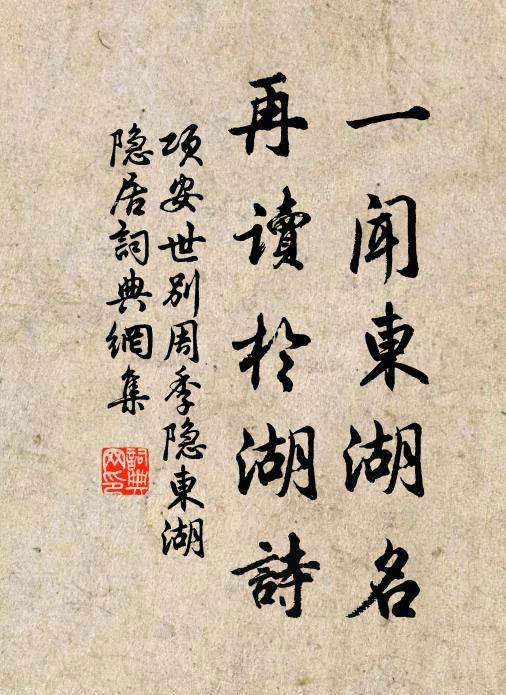 一聞東湖名
再讀於湖詩
项安世别周季隐東湖
隐居詞典網集
詞典
网印